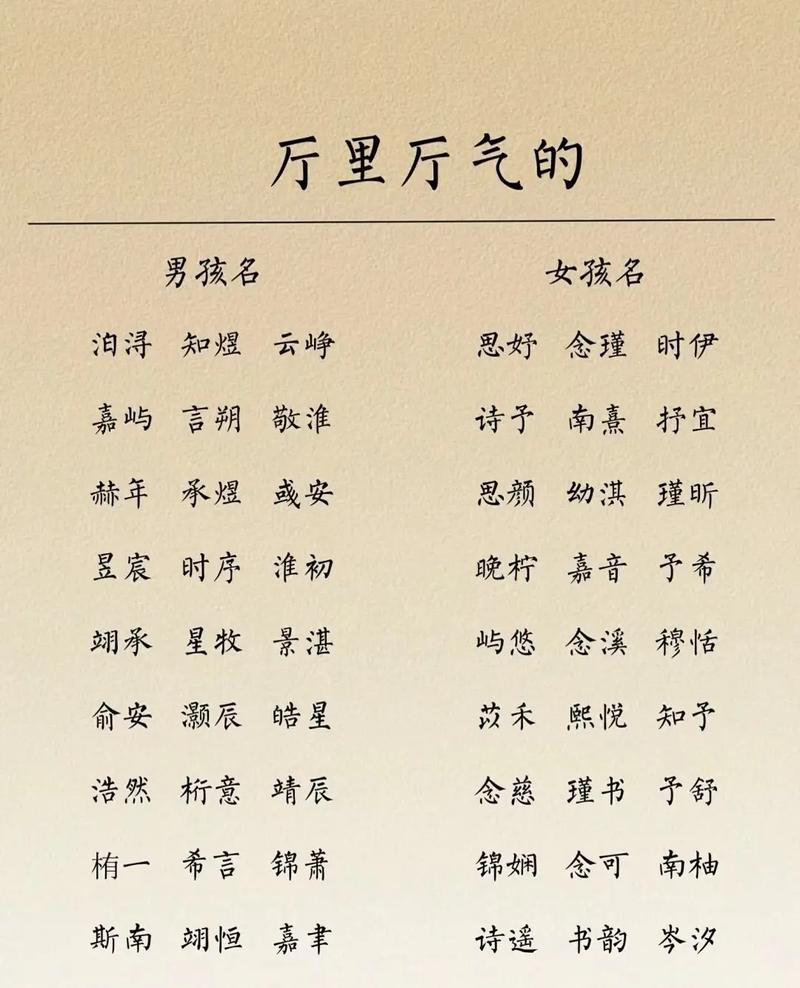 厅里厅气的
男孩名 女孩名
泊浔 知煜 云峥 思妤 念瑾 时伊
嘉屿 言朔 敬淮 诗予 南熹 抒宜
赫年 承煜 彧安 思颜 幼淇 瑾昕
昱宸 时序 淮初 晚柠 嘉音 予希
翊承 星牧 景湛 屿悠 念溪 穆恬
俞安 灏辰 皓星 苡禾 熙悦 知予
浩然 桁意 靖辰 念慈 瑾书 予舒
栯一 希言 锦萧 锦娴 念可 南柚
斯南 翊恒 嘉聿 诗遥 书韵 岑汐